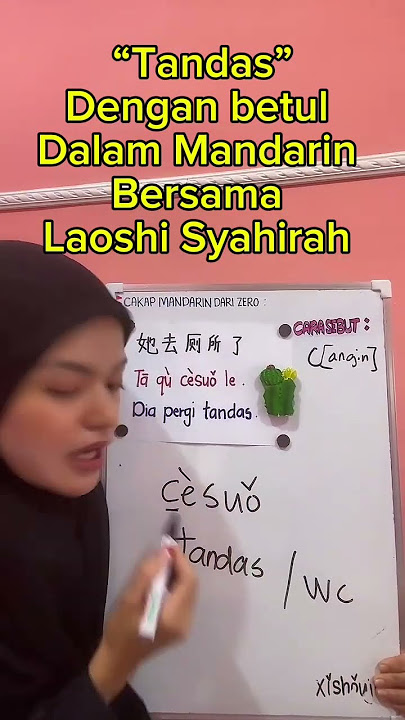 “Tandas”
Dengan betul
Dalam Mandarin
Bersama
Laoshi Syahirah
CAKAP MANDARIN DARI ZERO :
她去厕所了
Tā qù cèsuǒ le .
Dia pergi tandas.
CARA SEBUT :
C[angin]
cèsuǒ
tandas / wc